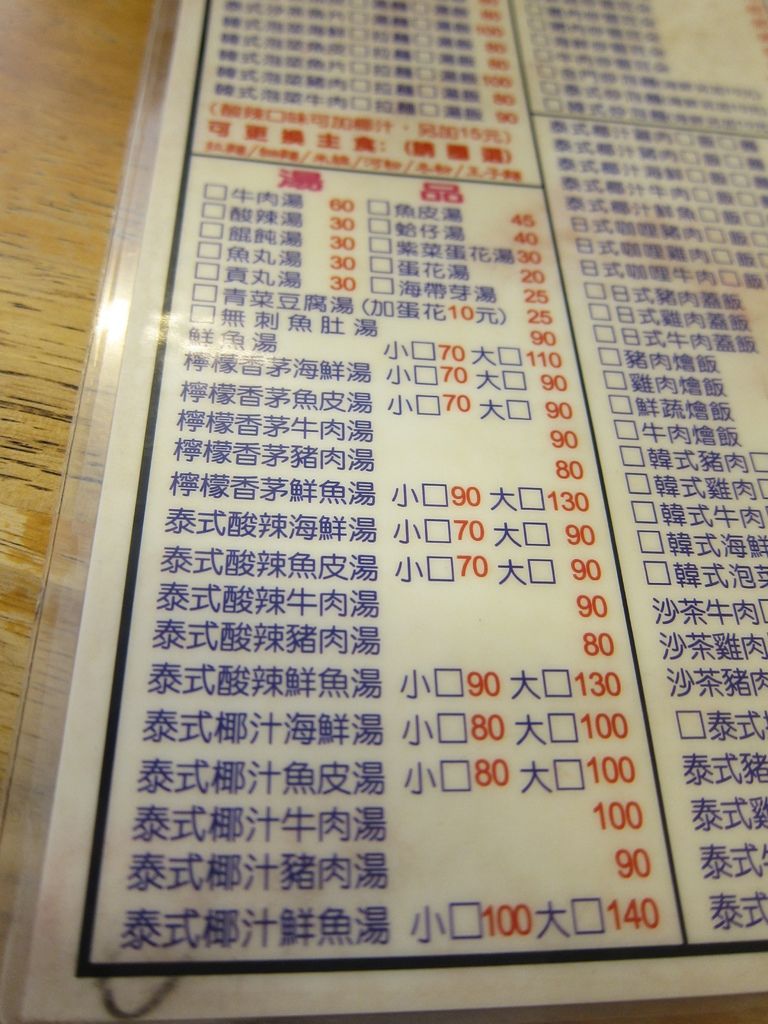 (酸辣口味可加椰汁,另加15元)
可更換主食:
湯 品
□牛肉湯 60 □魚皮湯 45
□酸辣湯 30 □蛤仔湯 40
□餛飩湯 30 □紫菜蛋花湯 30
□魚丸湯 30 □蛋花湯 20
□貢丸湯 30 □海帶芽湯 25
□青菜豆腐湯(加蛋花10元) 25
□無刺魚肚湯 90
鮮魚湯 小□70 大□110
檸檬香茅海鮮湯 小□70 大□90
檸檬香茅魚皮湯 小□70 大□90
檸檬香茅牛肉湯 90
檸檬香茅豬肉湯 80
檸檬香茅鮮魚湯 小□90 大□130
泰式酸辣海鮮湯 小□70 大□90
泰式酸辣魚皮湯 小□70 大□90
泰式酸辣牛肉湯 90
泰式酸辣豬肉湯 80
泰式酸辣鮮魚湯 小□90 大□130
泰式椰汁海鮮湯 小□80 大□100
泰式椰汁魚皮湯 小□80 大□100
泰式椰汁牛肉湯 100
泰式椰汁豬肉湯 90
泰式椰汁鮮魚湯 小□100 大□140
泰式椰汁雞肉□飯□
泰式椰汁豬肉□飯□
泰式椰汁海鮮□飯□
泰式椰汁牛肉□飯□
泰式椰汁鮮魚□飯□
日式咖哩豬肉□飯
日式咖哩雞肉□飯
日式咖哩牛肉□飯
□日式豬肉蓋飯
□日式雞肉蓋飯
□日式牛肉蓋飯
□豬肉燴飯
□雞肉燴飯
□鮮蔬燴飯
□牛肉燴飯
□韓式豬肉□
□韓式雞肉□
□韓式牛肉
□韓式海鮮
□韓式泡菜
沙茶牛肉□
沙茶雞肉
沙茶豬肉
□泰式
泰式豬
泰式雞
泰式牛
泰式